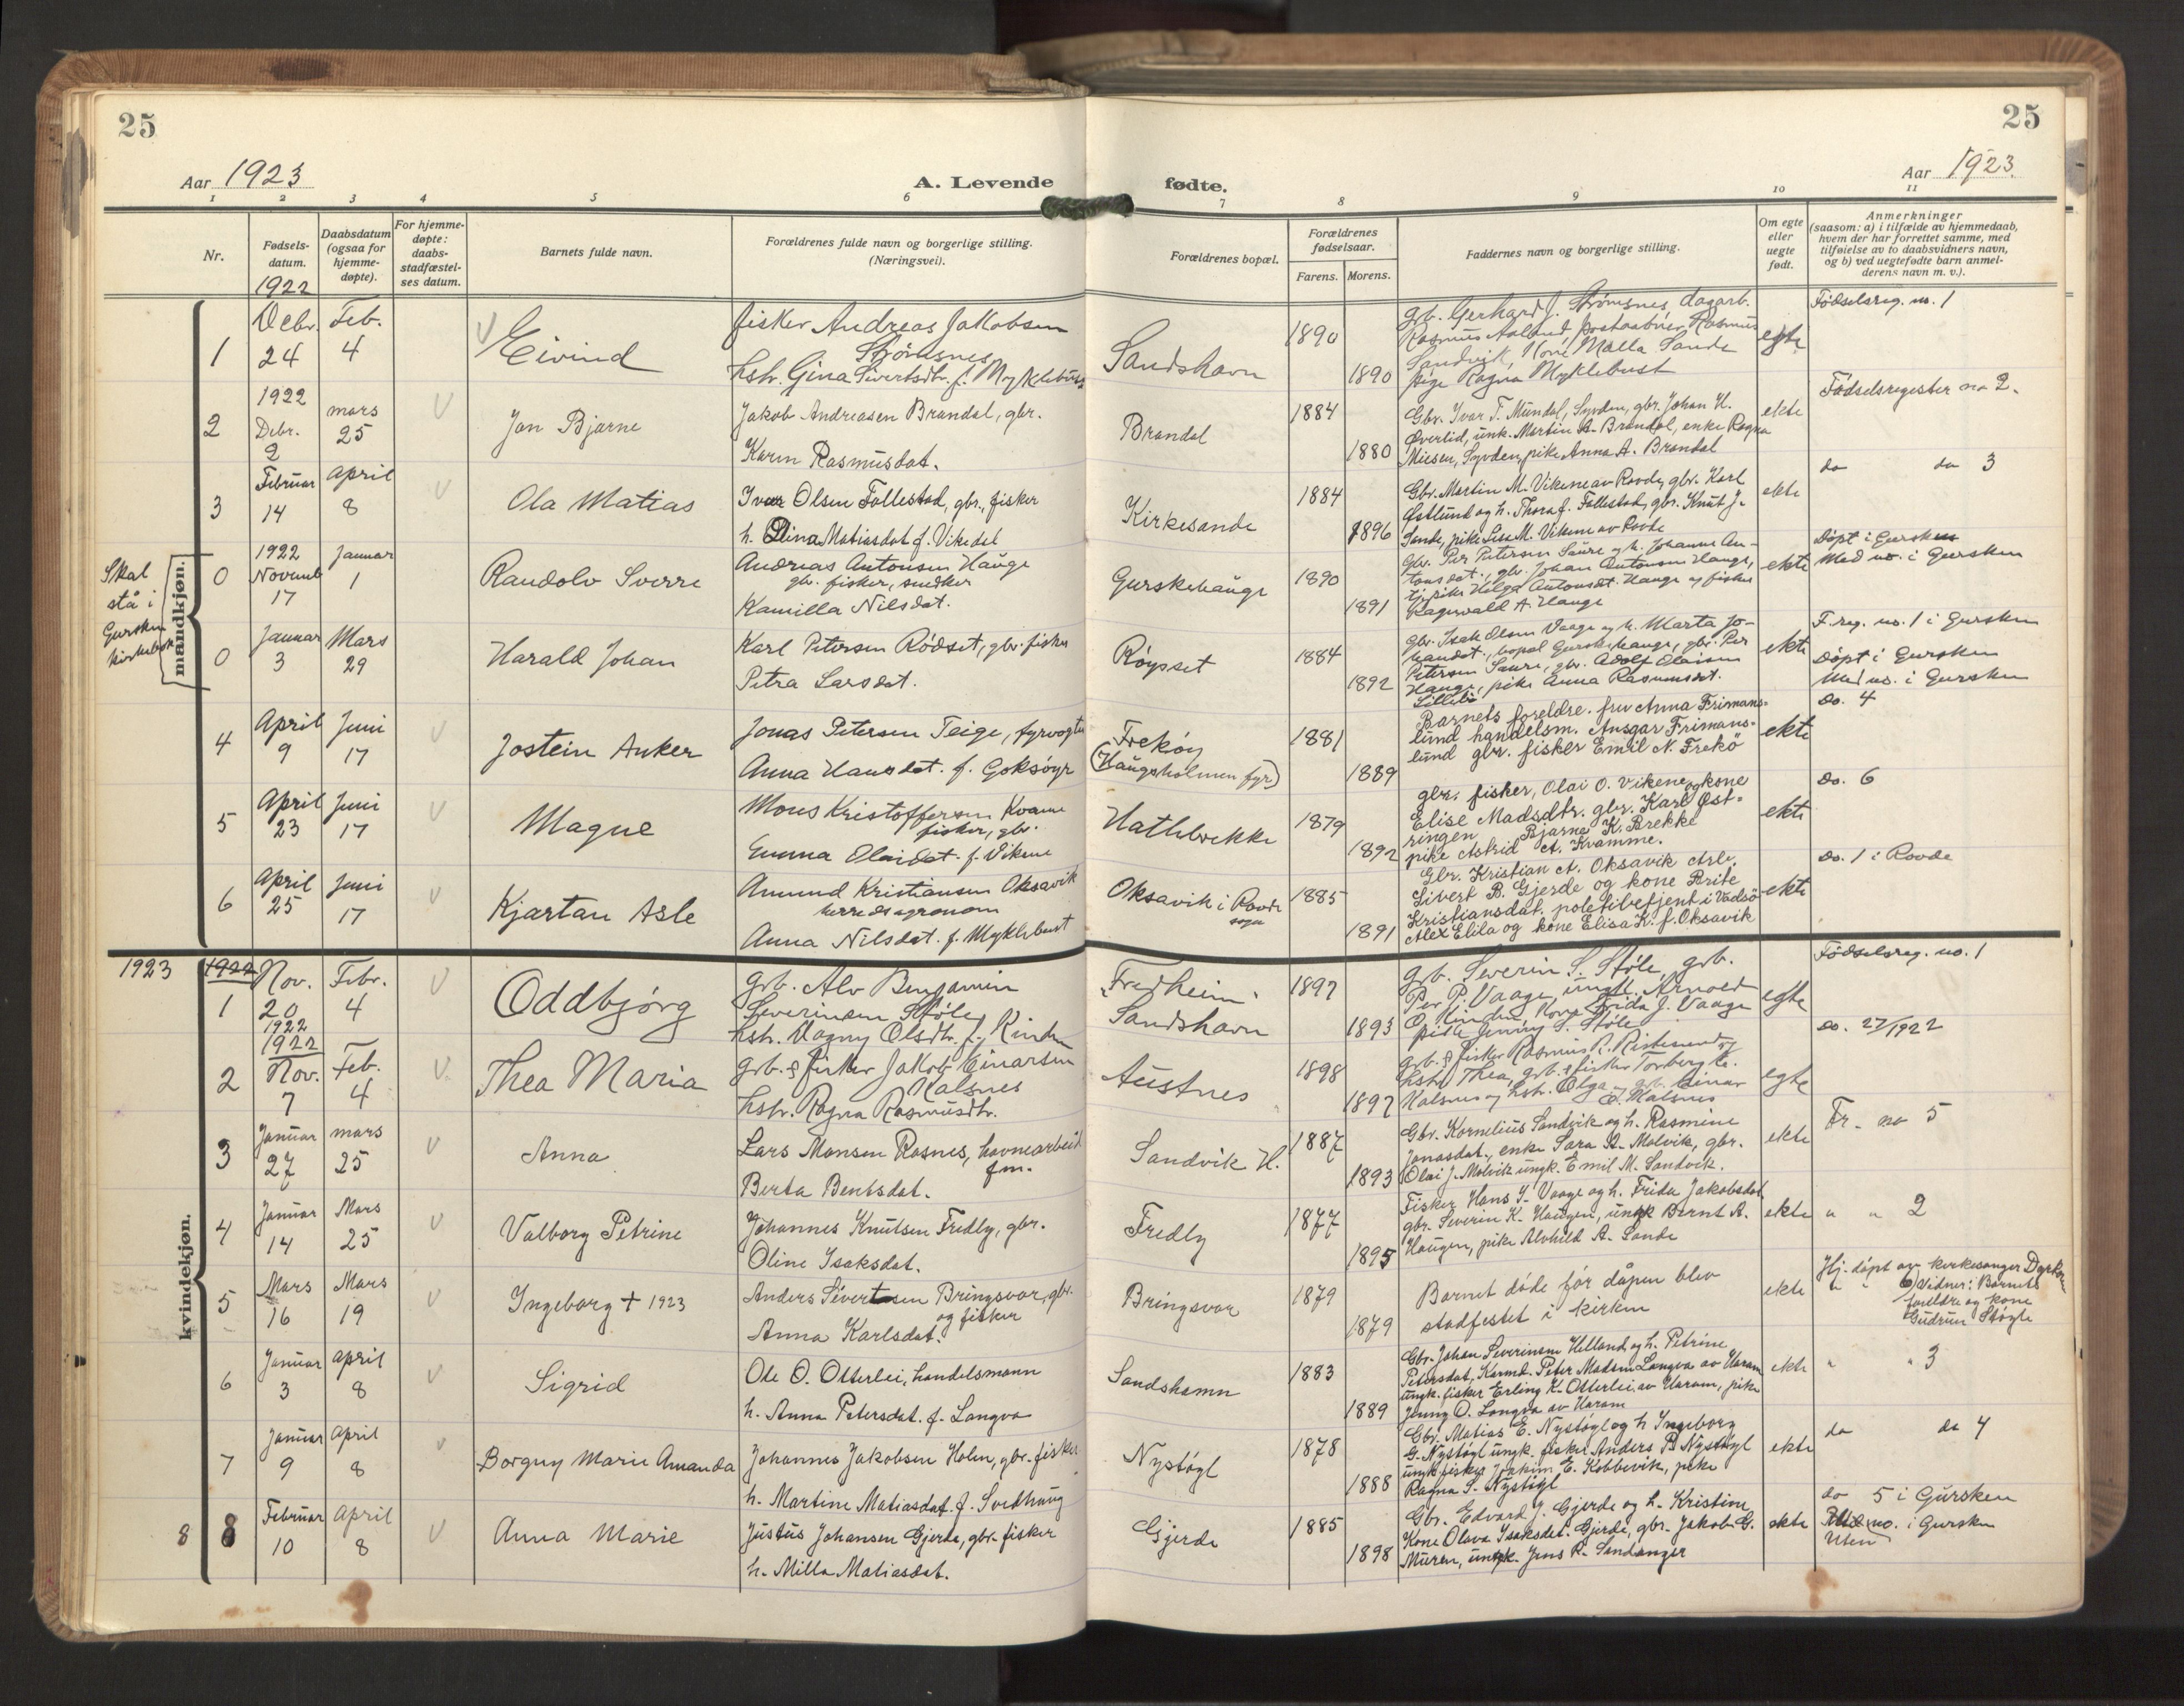 25
25
Aar 1923
A. Levende fødte.
Aar 1923.
1 2 3 4 5 6 7 8 9 10 11
Nr.
Fødsels-
datum.
Daabsdatum
(ogsaa for
hjemme-
døpte).
For hjemme-
døpte:
daabs-
stadfæstel-
ses datum.
Barnets fulde navn.
Forældrenes fulde navn og borgerlige stilling.
(Næringsvei).
Forældrenes bopæl.
Forældrenes
fødselsaar.
Farens. Morens.
Faddernes navn og borgerlige stilling.
Om egte
eller
uegte
født.
Anmerkninger
(saasom: a) i tilfælde av hjemmedaab,
hvem der har forrettet samme, med
tilføielse av to daabsvidners navn,
og b) ved uegtefødte barn anmel-
derens navn m. v.).
mandkjøn.
Skal
stå i
Gursken
kirkebok
1
1922
Debr.
24
Feb.
4
Eivind
fisker Andreas Jakobsen
Strømsnes
hstr. Gina Sivertsdtr. f. Myklebust
Sandshavn
1890
1890
grb. Gerhard J. Strømsnes, dagarb.
Rasmus Aaland, postaabner Rasmus
Sandvik, Kone Malla Sande
pige Ragna Myklebust
egte
Fødselsreg. no. 1
2
1922
Debr.
2
mars
25
Jon Bjarne
Jakob Andreasen Brandal, gbr.
Karen Rasmusdat.
Brandal
1884
1880
Gbr. Ivar T. Mundal, Syvden, gbr. Johan H.
Øverlid, unk. Martin A. Brandal, enke Ragna
Miesen, Syvden, pike Anna A. Brandal
ekte
Fødselsregister no 2.
3
Februar
14
April
8
Ola Matias
Ivar Olsen Follestad, gbr., fisker
h. Olina Matiasdat f. Vikedal
Kirkesande
1884
1896
Gbr. Martin M. Vikene av Rovde, gbr. Karl
Østlund og h. Thora f. Follestad, gbr. Knut J.
Sande, pike Lisa M. Vikene av Rovde
ekte
do do 3
0
1922
Novemb
17
Januar
1
Randolv Sverre
Andreas Antonsen Hauge
gbr. fisker, snedker
Kamilla Nilsdat.
Gurskehauge
1890
1891
Gbr. Per Petersen Saure og h. Johanne An-
tonsdat., gbr. Johan Antonsen Hauge,
tj.pike Helga Antonsdt. Hauge og fisker
Ragnvald A. Hauge
ekte
Døpt i Gursken
Med no. i Gursken
0
Januar
3
Mars
29
Harald Johan
Karl Petersen Rødset, gbr. fisker
Petra Larsdat.
Røysset
1884
1892
Gbr. Isak Olsen Vaage og h. Marta Jo-
handat., bopal Gurskehauge, gbr. Per
Petersen Saure, gbr. Adolf Olaisen
Hauge, pike Anna Rasmusdat.
Lillebø
ekte
F.reg. no. 1 i Gursken
Døpt i Gursken
Med no. i Gursken
4
April
9
Juni
17
Jostein Anker
Jonas Petersen Teige, fyrvogter
Anna Hansdat. f. Goksøyr
Frekøy
(Haugsholmen fyr)
1881
1889
Barnets foreldre. fru Anna Frimans-
lund handelsm. Ansgar Frimans-
lund gbr. fisker Emil N. Frekö
ekte
do. 4
5
April
23
Juni
17
Magne
Mons Kristoffersen Kvame
fisker, gbr.
Emma Olaidat. f. Vikene
Hatlebrekke
1879
1892
gbr. fisker, Olai O. Vikene og kone
Elise Madsdtr. gbr. Karl Øst-
ringen Bjarne K. Brekke
pike Astrid A. Kvamme.
ekte
do. 6
6
April
25
Juni
17
Kjartan Asle
Amund Kristiansen Oksavik
herredsagronom
Anna Nilsdat. f. Myklebust
Oksavik i Rovde
sogn
1885
1891
Gbr. Kristian A. Oksavik Arb.
Sivert B. Gjerde og kone Brite
Kristiansdat. politibetjent i Vadsö
Alex Elila og kone Elisa K. f. Oksavik
ekte
do. 1 i Rovde
kvindekjøn.
1923
1922
1
Nov.
20
1922
Febr.
4
Oddbjørg
grb. Alv Benjamin
Severinsen Støle
hstr. Magny Olsdtr. f. Kinden
"Fredheim"
Sandshavn
1897
1893
grb. Severin S. Støle, grb.
Per P. Vaage, ungk. Arnold
O. Kinden, Kone Frida J. Vaage
pike Jenny S. Støle
egte
Fødselsreg. no. 1
2
1922
Nov.
7
Feb.
4
Thea Maria
grb. & fisker Jakob Einarsen
Kalsnes
hstr. Ragna Rasmusdtr.
Austnes
1898
1897
grb. & fisker Rasmus R. og
hstr. Thea, grb. & fisker Torberg
Kalsnes og hstr. Olga og grb. Einar
Kalsnes
egte
do. 27/1922
3
Januar
27
mars
25
Anna
Lars Monsen Rosnes, havnearbeid.
fm.
Berta Bentsdat.
Sandvik H.
1887
1893
Gbr. Kornelius Sandvik og h. Rasmine
Jonasdat., enke Sara A. Molvik, gbr.
Olai J. Molvik ungk. Emil M. Sandvik.
ekte
Fr. no 5
4
Januar
14
Mars
25
Valborg Petrine
Johannes Knutsen Fredly, gbr.
Oline Isaksdat.
Fredly
1877
1895
Fisker Hans J. Vaage og h. Frida Jakobsdat
gbr. Severin K. Haugen, ungk Bernt A.
Haugen, pike Alvhild A. Sande
ekte
" " 2
5
Mars
16
Mars
19
Ingeborg + 1923
Anders Sivertsen Bringsvor, gbr.
og fisker
Anna Karlsdat.
Bringsvor
1879
1879
Barnet døde før dåpen blev
stadfestet i kirken
ekte
Hj. døpt av kirkesanger Dyrkorn
" " 6 Vidner: Barnets
foreldre og kone
Gudrun Støyle
6
Januar
3
April
8
Sigrid
Ole O. Otterlei, handelsmann
h. Anna Petersdat. f. Longva
Sandshamn
1883
1889
Gbr. Johan Severinsen Helland og h. Petrine
Petersdat, Kormd. Peter Madsen Longva av Haram
ungk. fisker Erling K. Otterlei av Haram, pike
Jenny O. Longva av Haram
ekte
" " 3
7
Januar
9
April
8
Borgny Marie Amanda
Johannes Jakobsen Holm, gbr. fisker
h. Martine Matiasdat f. Sordhaug
Nystøyl
1878
1888
Gbr. Matias E. Nystøyl og h Ingeborg
G. Nystøyl ungk. fisker Anders P. Nystøyl
ungk. fisker Joakim E. Kobbevik, pike
Ragna S. Nystøyl
ekte
do do 4
8 8
Februar
10
April
8
Anna Marie
Justus Johansen Gjerde, gbr. fisker
h. Milla Matiasdat.
Gjerde
1885
1898
Gbr. Edvard J. Gjerde og h. Kristine
Kone Olava Isaksdat. Gjerde, gbr. Jakob G.
Muren, ungk. Jens R. Sandanger
ekte
do 5 i Gursken
Med no. i Gursken
Uten